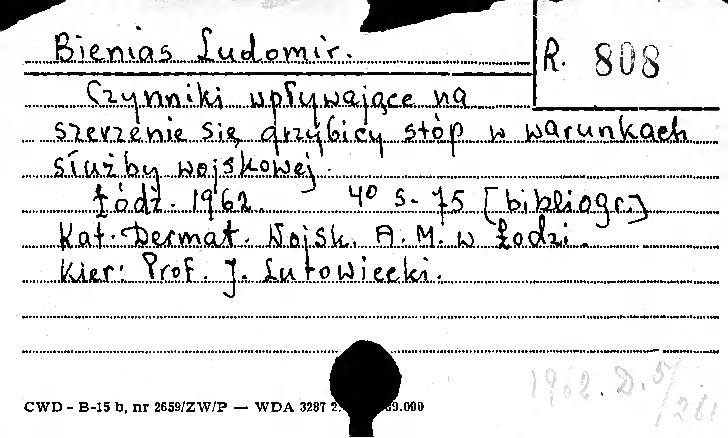 Bienias Ludomir.
R. 808
Czynniki wpływające na
szerzenie się grzybicy stóp w warunkach
służby wojskowej.
Łódź. 1962. 4° s. 75 [bibliogr.]
Kat. Dermat. Wojsk. A. M. w Łodzi.
Kier: Prof. J. Lutowiecki.
1962. D. 5/
CWD - B-15 b, nr 2659/ZW/P — WDA 3287 2 9.000